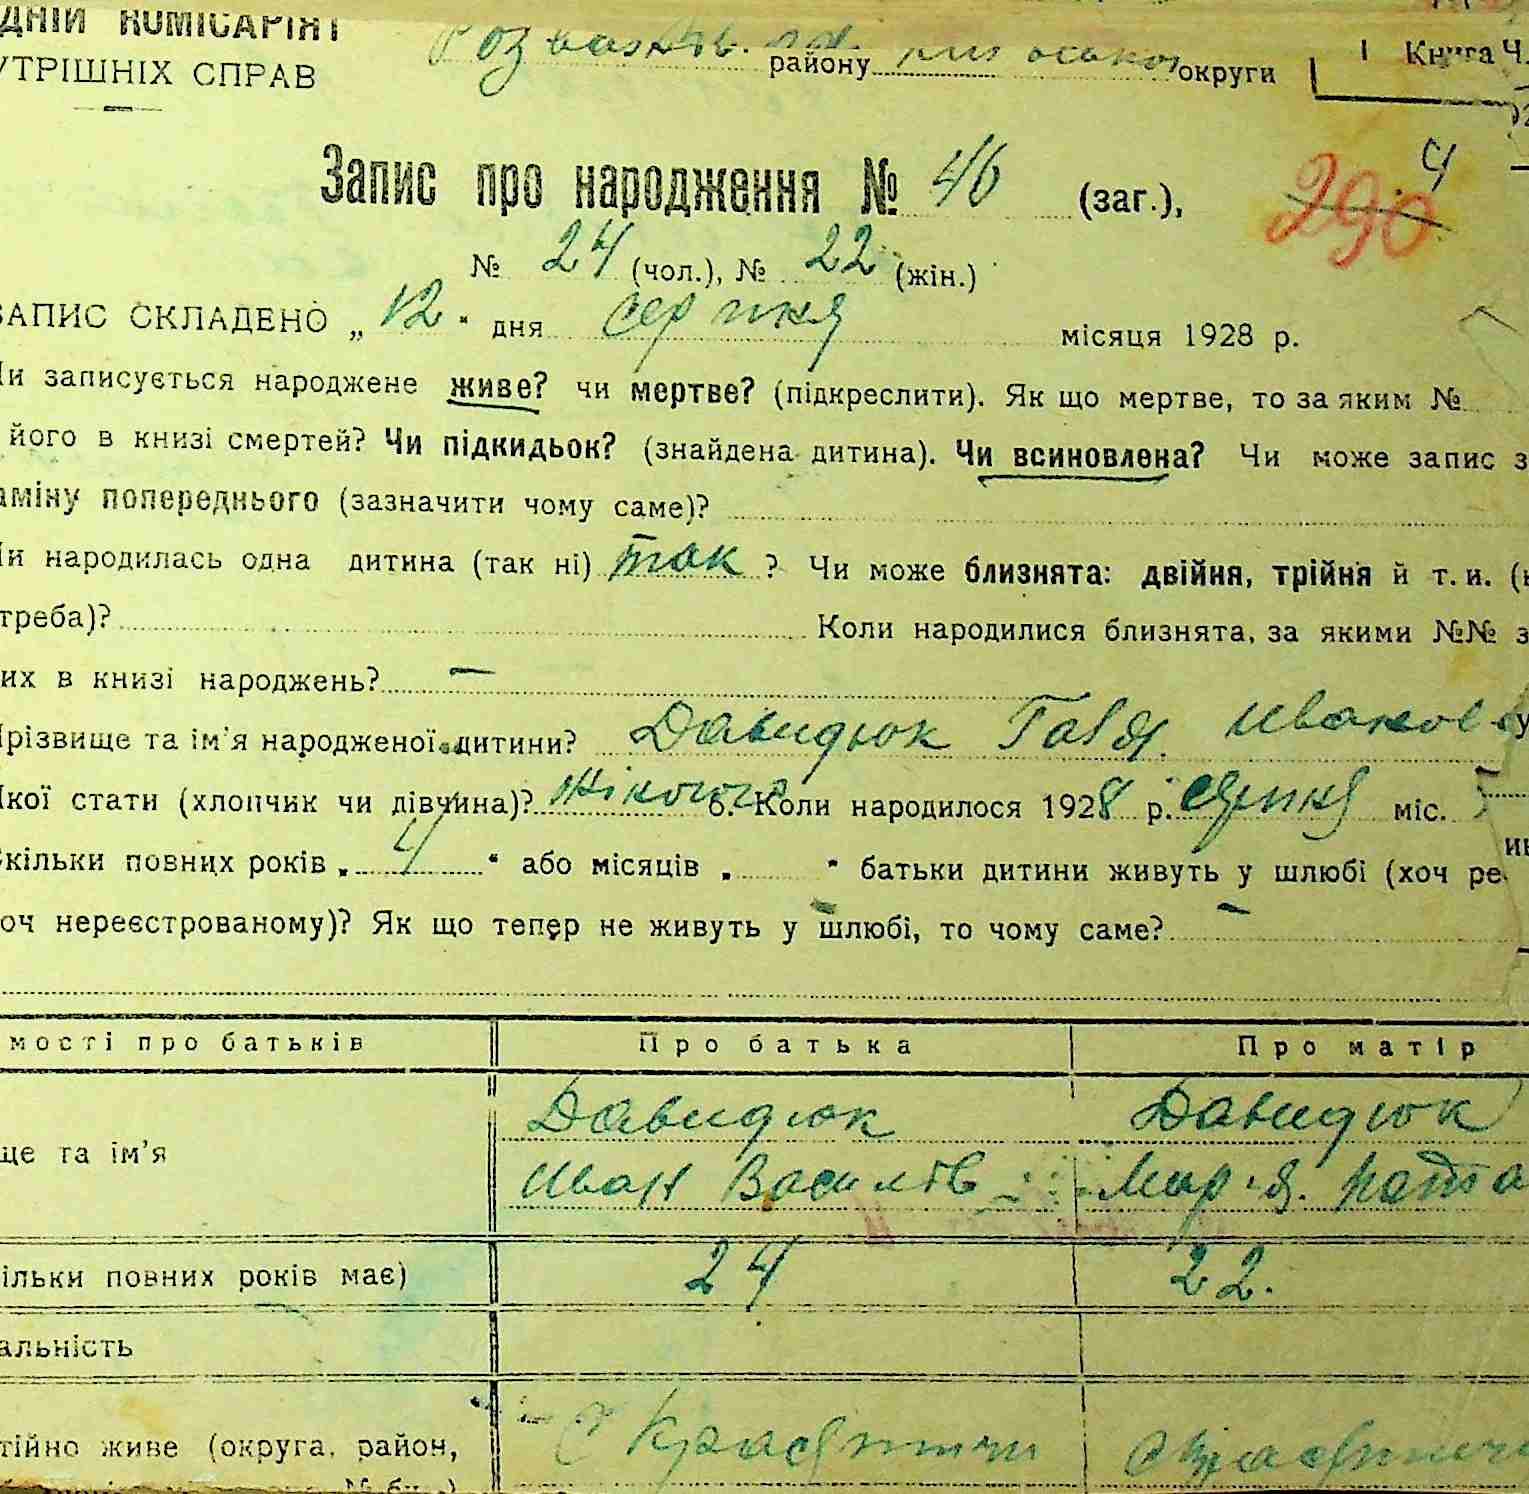 ДНІЙ КОМІСАРІЯТ
УТРІШНІХ СПРАВ
району округи
Книга Ч.
Запис про народження № 46 (заг.),
4
290
№ 24 (чол.), № 22 (жін.)
ЗАПИС СКЛАДЕНО „12“ дня серпня місяця 1928 р.
Чи записується народжене живе? чи мертве? (підкреслити). Як що мертве, то за яким №
його в книзі смертей? Чи підкидьок? (знайдена дитина). Чи всиновлена? Чи може запис з
аміну попереднього (зазначити чому саме)?
Чи народилась одна дитина (так ні) так? Чи може близнята: двійня, трійня й т. и. (
треба)? Коли народилися близнята, за якими №№ з
их в книзі народжень? —
Прізвище та ім'я народженої дитини? Давидюк Галя Иванов
Якої статі (хлопчик чи дівчина)? жіноча 6. Коли народилося 1928 р. серпня міс.
Скільки повних років „4“ або місяців „ “ батьки дитини живуть у шлюбі (хоч ре
оч нереєстрованому)? Як що тепер не живуть у шлюбі, то чому саме? —
мості про батьків Про батька Про матір
Давидюк Давидюк
ще та ім'я
Иван Василів Мария
ільки повних років має) 24 22.
альність
тійно живе (округа, район, с Красятичи с Красятичи